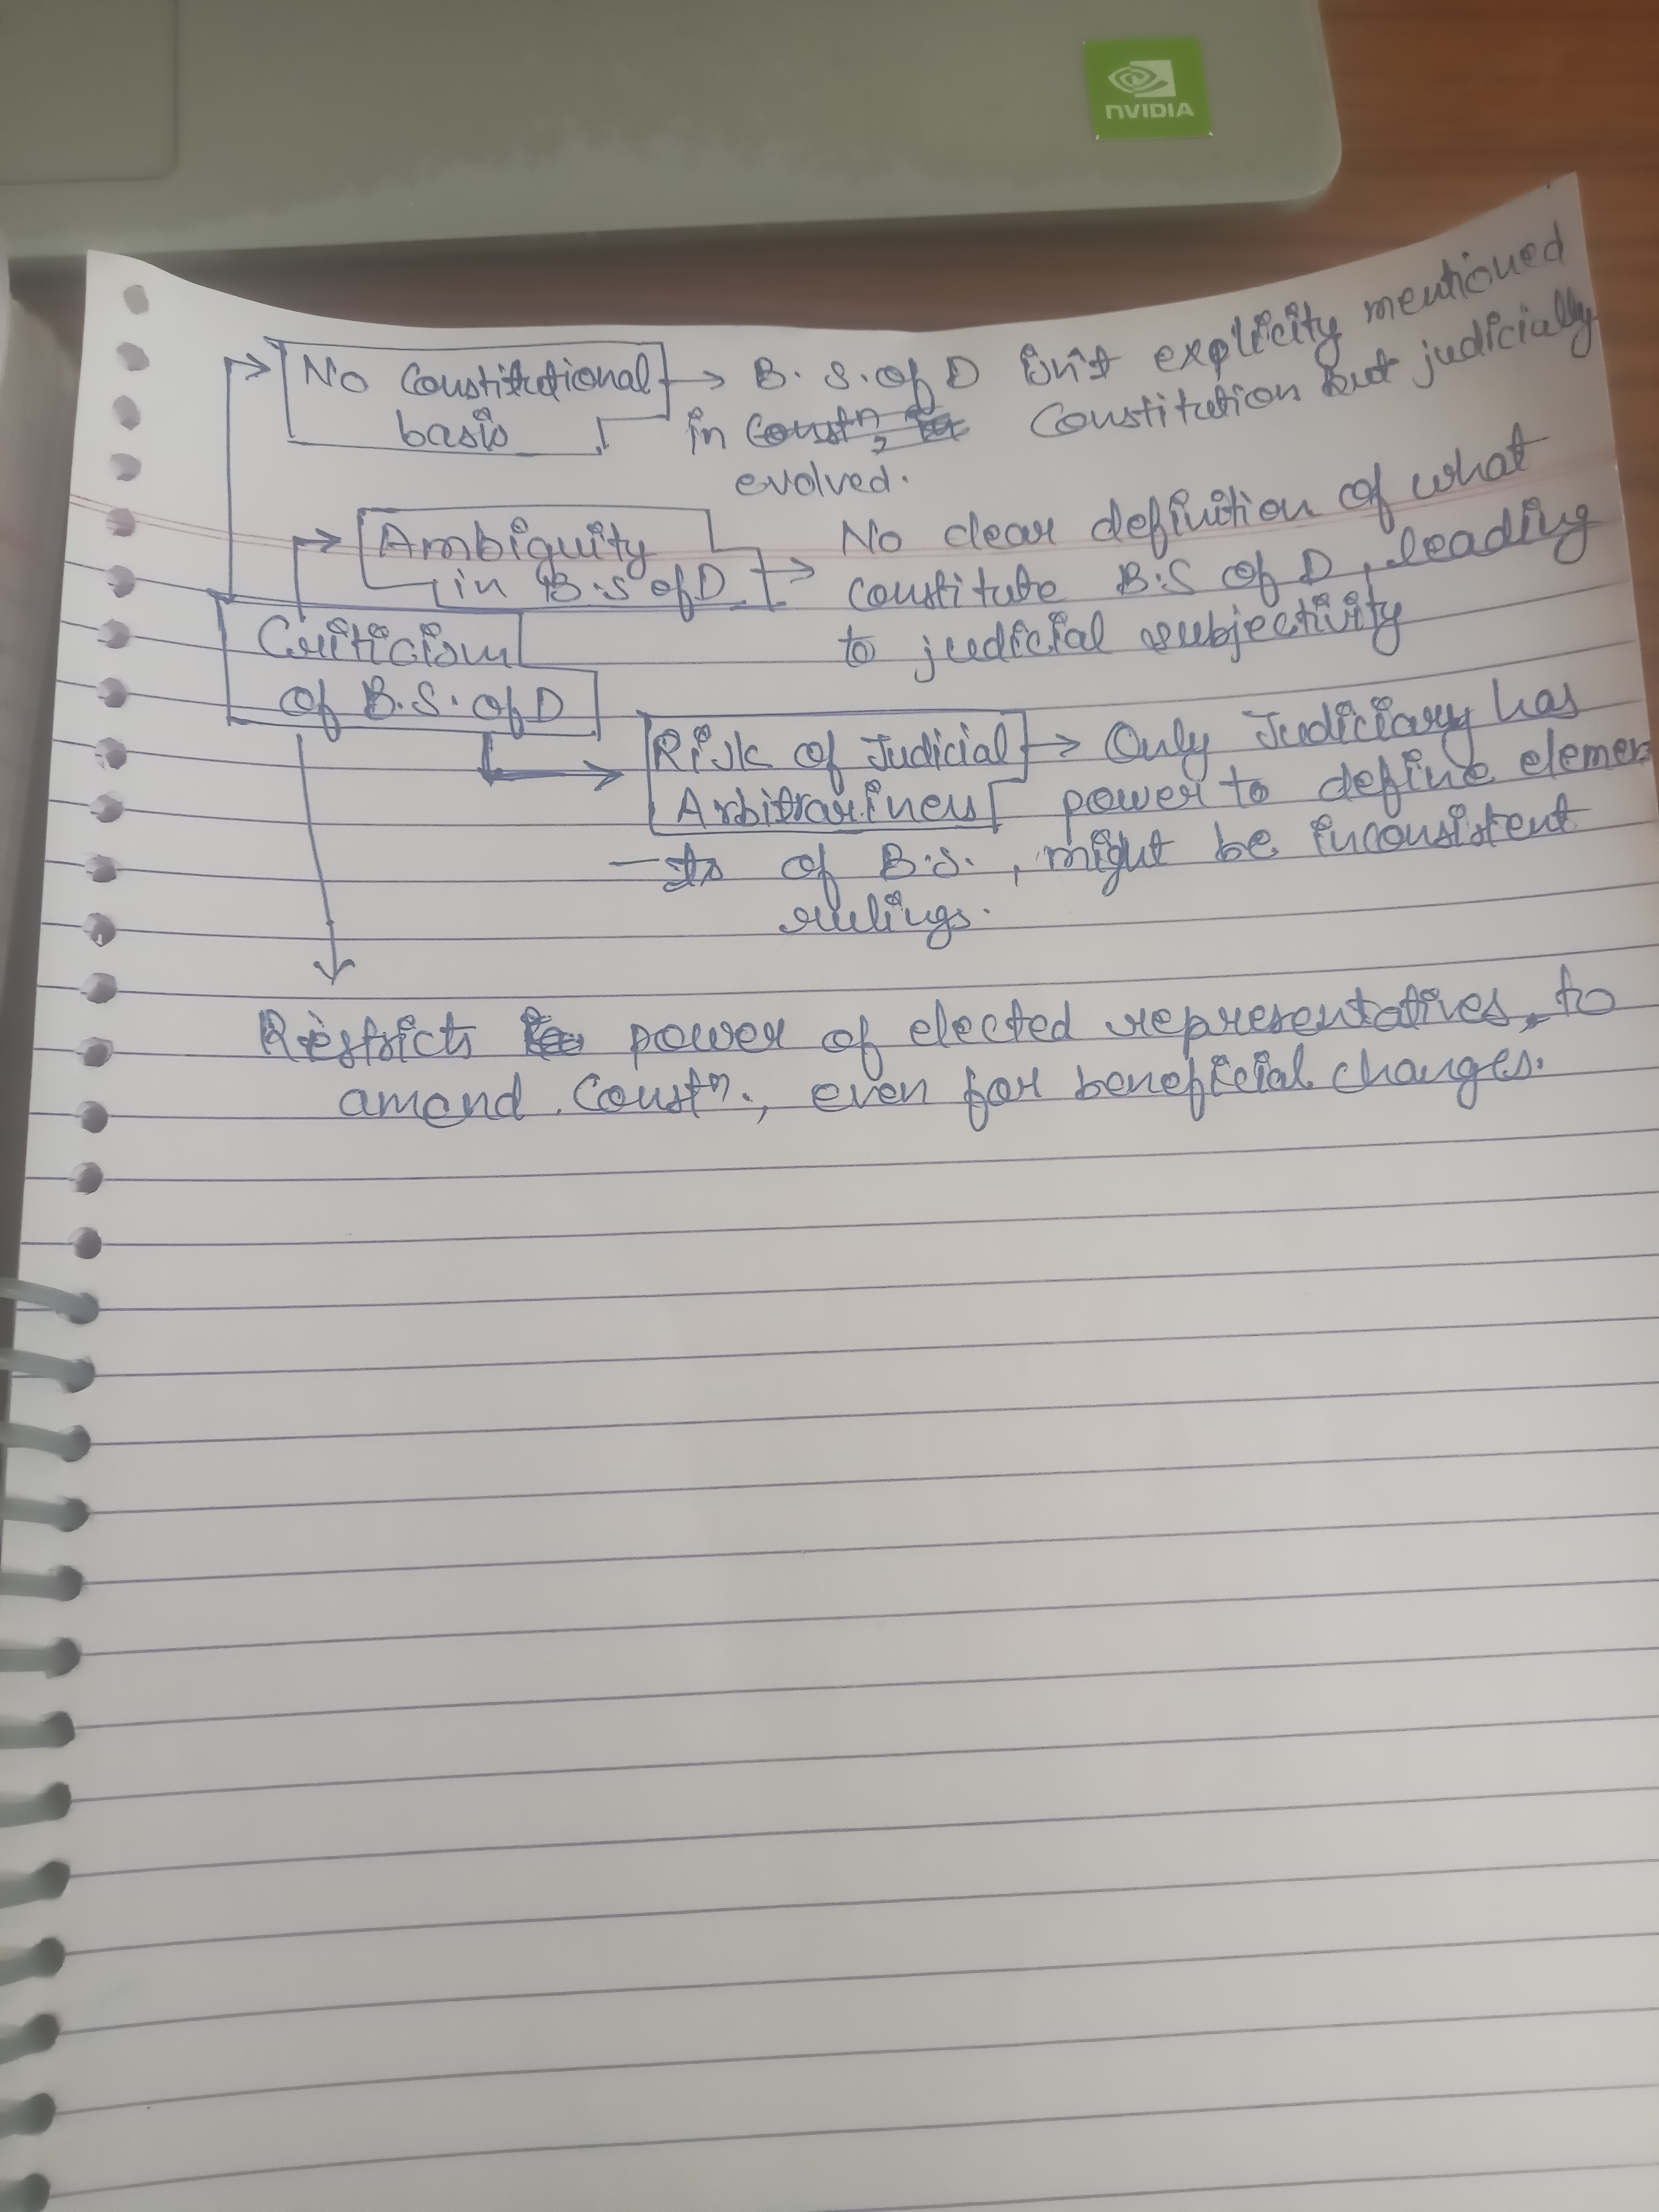 NVIDIA
No Constitutional basis → B.S. of D isn't explicity mentioned
in Constn, Constitution but judicially
evolved.
Ambiguity in B.S of D → No clear definition of what
constitute B.S of D, leading
to judicial subjectivity
Criticism
of B.S. of D
Risk of Judicial → Only Judiciary has
Arbitrariness power to define elemen
-ts of B.S., might be inconsistent
rulings.
Restricts power of elected representatives, to
amend Constn., even for beneficial changes.